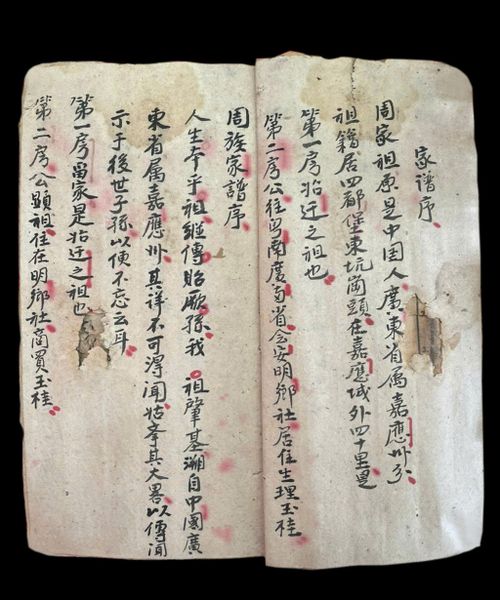 家譜序
周家祖原是中国人廣東省屬嘉應州分
祖籍居四都堡東坑崗頭在嘉應城外四十里是
第一房始迁之祖也
第二房公往南廣南省会安明鄉社居住生理玉桂
周族家譜序
人生本乎祖繼傳貽厥孫我 祖肇基溯自中國廣
東省屬嘉應州其詳不可得闻姑举其大畧以傳闻
示于後世子孫以使不忘云耳
第一房留家是始迁之祖也
第二房公顯祖往在明鄉社商買玉桂